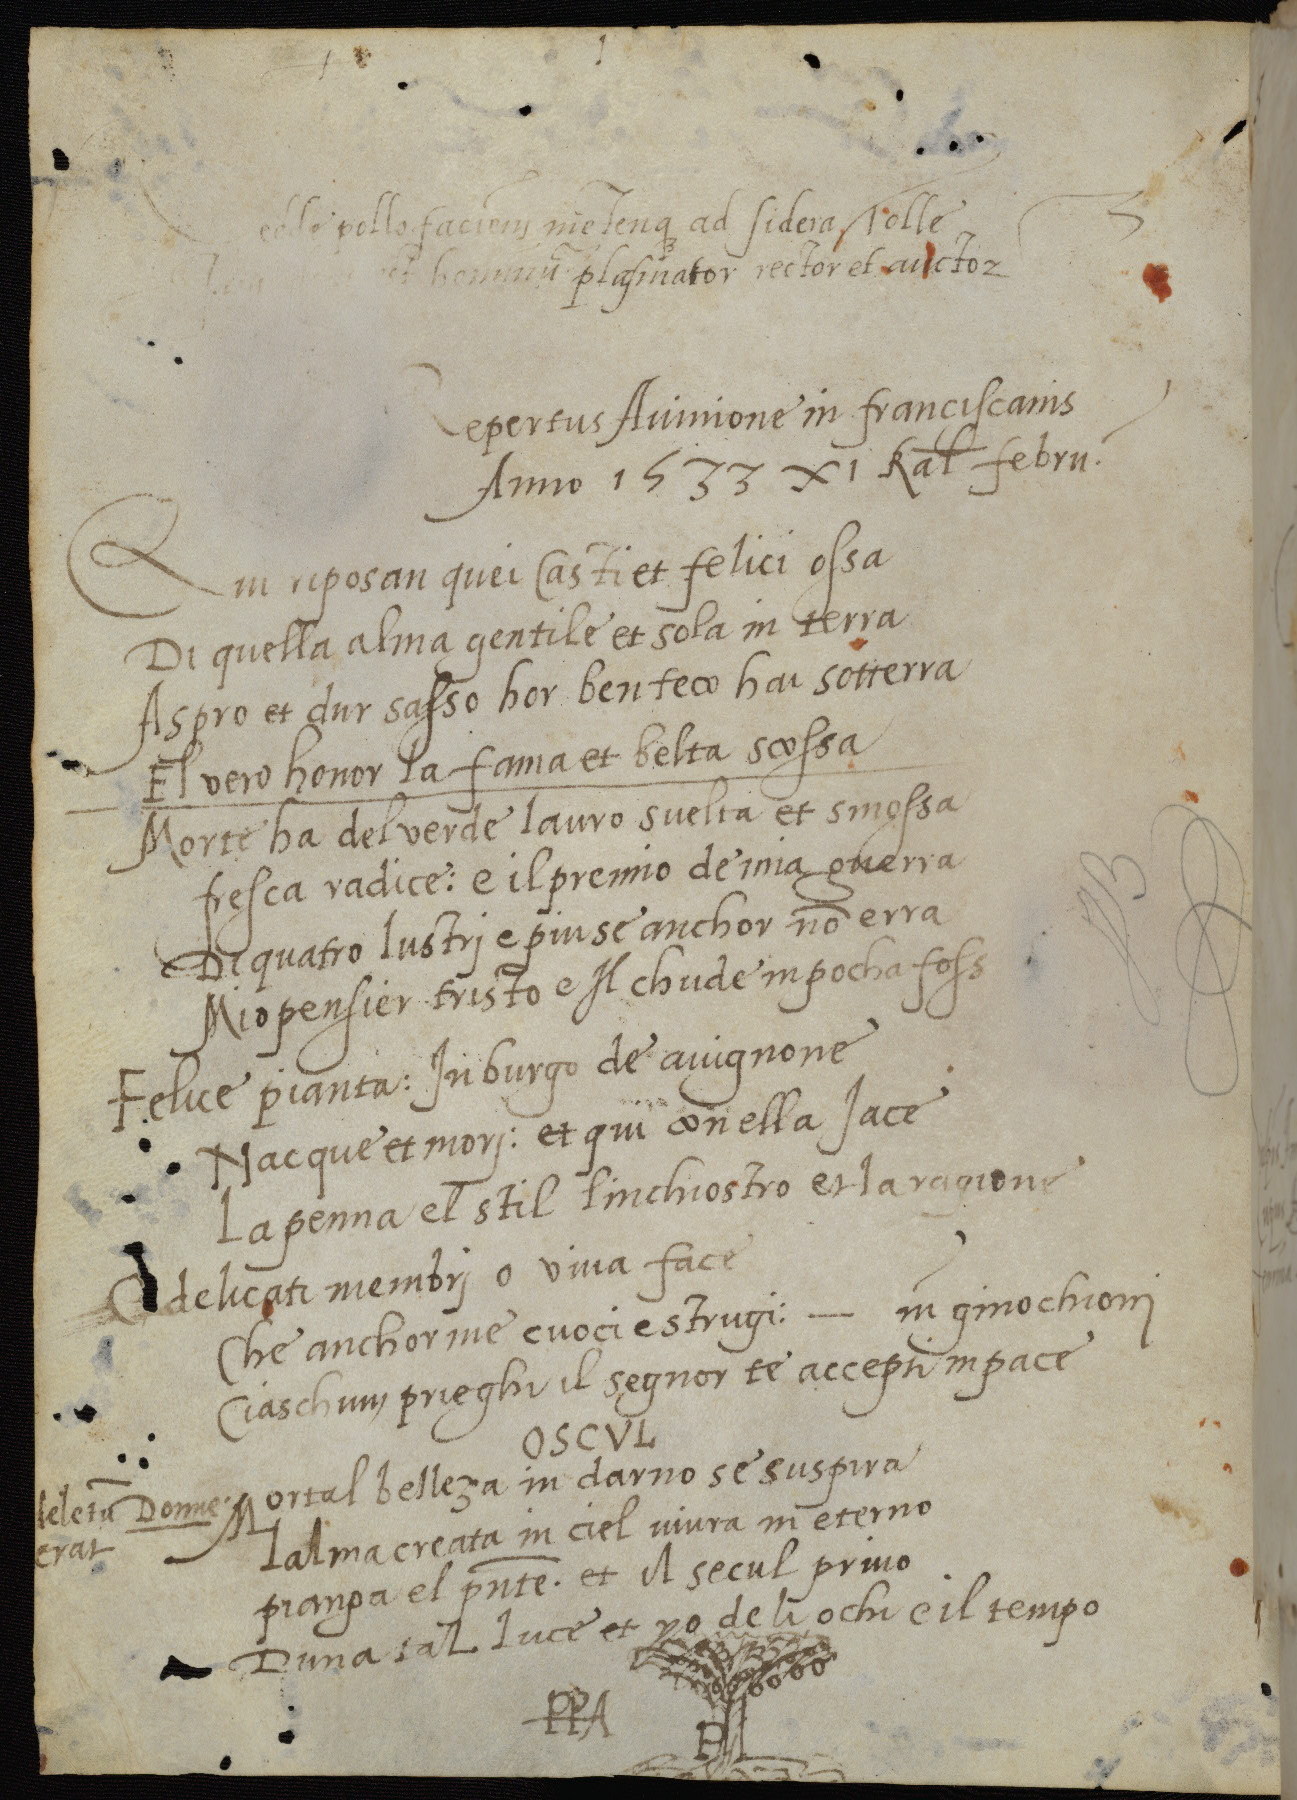 pollo faciem mētenq ad sidera Tolle
hominū plasmator rector et auctor
Repertus Auinione in franciscanis
Anno 1533 XI Kal febru.
Qui riposan quei Casti et felici ossa
Di quella alma gentile et sola in terra
Aspro et dur sasso hor ben teco hai sotterra
El vero honor la fama et belta scossa
Morte ha del verde lauro suelta et smossa
fresca radice: e il premio de mia guerra
Di quatro lustrj e piu se anchor nō erra
Mio pensier tristo e Il chude in pocha foss
Felice pianta: In burgo de auignone
Nacque et morj: et qui con ella Jace
La penna el stil linchiostro et la ragione
O delicati membrj o viua face
Che anchor me cuoci e strugi: — in ginochionj
Ciaschun prieghi il segnor te accepti in pace
OSCVL
Mortal belleza in darno se suspira
deletū Donne:
erat
lalma creata in ciel uiura in eterno
pianga el pn̄te. et il secul priuo
Duna tal luce et yo deli ochi e il tempo
PPA